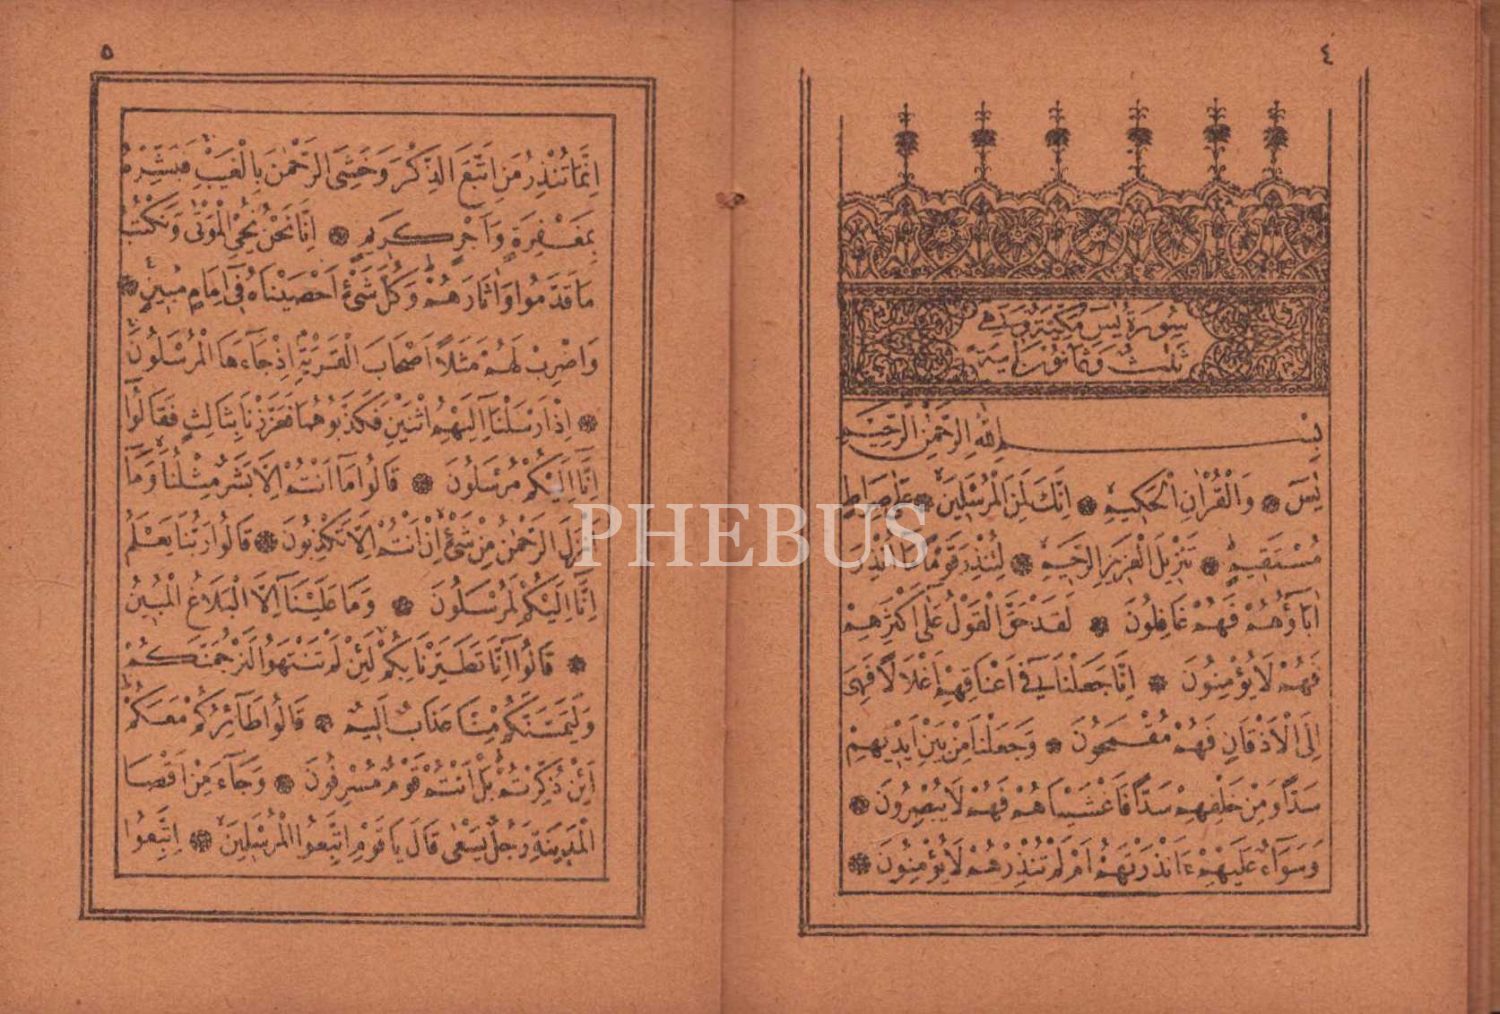 ٤
سورة يس مكية وهي
ثلث وثمانون اية
بِسْمِ اللهِ الرَّحْمٰنِ الرَّحِيمِ
يٰسٓ ❁ وَالْقُرْاٰنِ الْحَكِيمِ ❁ اِنَّكَ لَمِنَ الْمُرْسَلِينَ ❁ عَلٰى صِرَاطٍ
مُسْتَقِيمٍ ❁ تَنْزِيلَ الْعَزِيزِ الرَّحِيمِ ❁ لِتُنْذِرَ قَوْمًا مَٓا اُنْذِرَ
اٰبَٓاؤُهُمْ فَهُمْ غَافِلُونَ ❁ لَقَدْ حَقَّ الْقَوْلُ عَلٰٓى اَكْثَرِهِمْ
فَهُمْ لَا يُؤْمِنُونَ ❁ اِنَّا جَعَلْنَا فِٓى اَعْنَاقِهِمْ اَغْلَالًا فَهِىَ
اِلَى الْاَذْقَانِ فَهُمْ مُقْمَحُونَ ❁ وَجَعَلْنَا مِنْ بَيْنِ اَيْدِيهِمْ
سَدًّا وَمِنْ خَلْفِهِمْ سَدًّا فَاَغْشَيْنَاهُمْ فَهُمْ لَا يُبْصِرُونَ ❁
وَسَوَٓاءٌ عَلَيْهِمْ ءَاَنْذَرْتَهُمْ اَمْ لَمْ تُنْذِرْهُمْ لَا يُؤْمِنُونَ ❁
٥
اِنَّمَا تُنْذِرُ مَنِ اتَّبَعَ الذِّكْرَ وَخَشِىَ الرَّحْمٰنَ بِالْغَيْبِ فَبَشِّرْهُ
بِمَغْفِرَةٍ وَاَجْرٍ كَرِيمٍ ❁ اِنَّا نَحْنُ نُحْىِ الْمَوْتٰى وَنَكْتُبُ
مَا قَدَّمُوا وَاٰثَارَهُمْ وَكُلَّ شَىْءٍ اَحْصَيْنَاهُ فِٓى اِمَامٍ مُبِينٍ ❁
وَاضْرِبْ لَهُمْ مَثَلًا اَصْحَابَ الْقَرْيَةِ اِذْ جَٓاءَهَا الْمُرْسَلُونَ
❁ اِذْ اَرْسَلْنَٓا اِلَيْهِمُ اثْنَيْنِ فَكَذَّبُوهُمَا فَعَزَّزْنَا بِثَالِثٍ فَقَالُٓوا
اِنَّٓا اِلَيْكُمْ مُرْسَلُونَ ❁ قَالُوا مَٓا اَنْتُمْ اِلَّا بَشَرٌ مِثْلُنَا وَمَٓا
اَنْزَلَ الرَّحْمٰنُ مِنْ شَىْءٍ اِنْ اَنْتُمْ اِلَّا تَكْذِبُونَ ❁ قَالُوا رَبُّنَا يَعْلَمُ
اِنَّٓا اِلَيْكُمْ لَمُرْسَلُونَ ❁ وَمَا عَلَيْنَٓا اِلَّا الْبَلَاغُ الْمُبِينُ
❁ قَالُٓوا اِنَّا تَطَيَّرْنَا بِكُمْ لَئِنْ لَمْ تَنْتَهُوا لَنَرْجُمَنَّكُمْ
وَلَيَمَسَّنَّكُمْ مِنَّا عَذَابٌ اَلِيمٌ ❁ قَالُوا طَٓائِرُكُمْ مَعَكُمْ
اَئِنْ ذُكِّرْتُمْ بَلْ اَنْتُمْ قَوْمٌ مُسْرِفُونَ ❁ وَجَٓاءَ مِنْ اَقْصَا
الْمَدِينَةِ رَجُلٌ يَسْعٰى قَالَ يَا قَوْمِ اتَّبِعُوا الْمُرْسَلِينَ ❁ اِتَّبِعُوا
PHEBUS